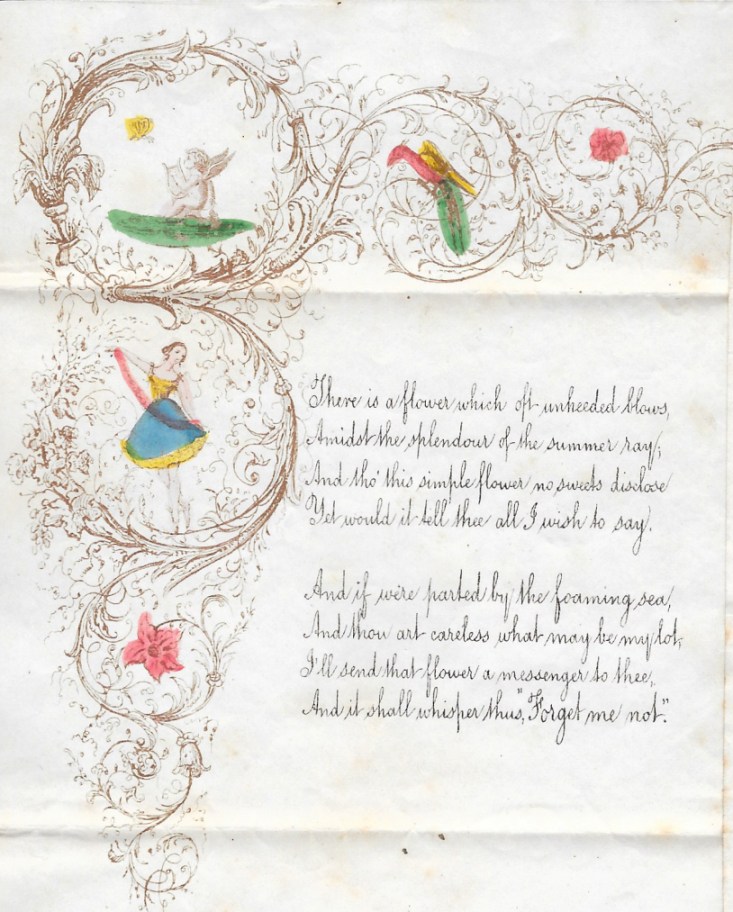 There is a flower which oft unheeded blows,
Amidst the splendour of the summer ray;
And tho' this simple flower no sweets disclose
Yet would it tell thee all I wish to say.
And if we're parted by the foaming sea,
And thou art careless what may be my lot,
I'll send that flower a messenger to thee,
And it shall whisper thus, "Forget me not."